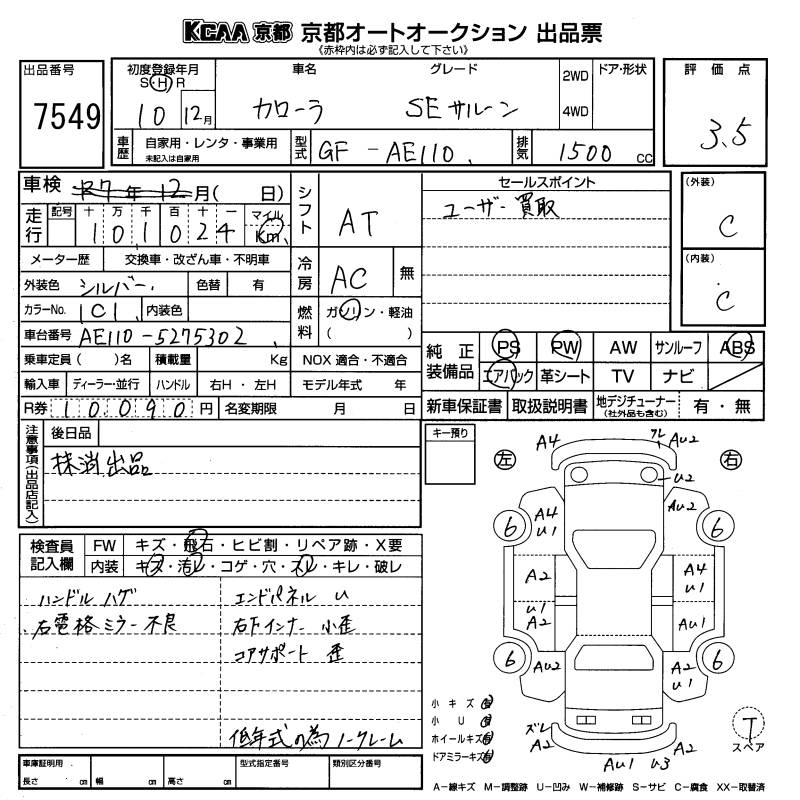 KCAA 京都 京都オートオークション 出品票
《赤枠内は必ず記入して下さい》
出品番号
7549
初度登録年月
S・H・R
10 12月
車名
カローラ
グレード
SEサルーン
2WD
4WD
ドア・形状
評価点
3.5
車歴
自家用・レンタ・事業用
未記入は自家用
型式
GF-AE110
排気
1500 cc
車検 R7年12月( 日)
走行
記号 十 万 千 百 十 一
101024
マイル
Km
メーター歴 交換車・改ざん車・不明車
外装色 シルバー 色替 有
カラーNo. 1C1 内装色
車台番号 AE110-5275302
乗車定員( )名 積載量 Kg
輸入車 ディーラー・並行 ハンドル 右H・左H
R券 10,090円 名変期限 月 日
シフト AT
冷房 AC 無
燃料 ガソリン・軽油
( )
NOX 適合・不適合
モデル年式 年
セールスポイント
ユーザー買取
(外装)
C
(内装)
C
純正装備品
PS PW AW サンルーフ ABS
エアバック 革シート TV ナビ
新車保証書 取扱説明書 地デジチューナー (社外品も含む) 有・無
注意事項(出品店記入)
後日品
抹消出品
キー預り
検査員記入欄
FW キズ・飛石・ヒビ割・リペア跡・X要
内装 キズ・汚レ・コゲ・穴・スレ・キレ・破レ
ハンドルハゲ
右電格ミラー不良
エンドパネル U
右下インナー 小歪
コアサポート 歪
低年式の為ノークレーム
車庫証明用
長さ cm 幅 cm 高さ cm
型式指定番号
類別区分番号
左
右
A4
フレ AU2
U2
A4
U1
AU2
6
6
A2
A4
U1
U1
A2
AU1
6
AU2
A2
U1
6
ズレ
A2
AU1
U3
A2
T
スペア
小キズ 有
小U 有
ホイールキズ 有
ドアミラーキズ 有
A-線キズ M-調整跡 U-凹み W-補修跡 S-サビ C-腐食 XX-取替済